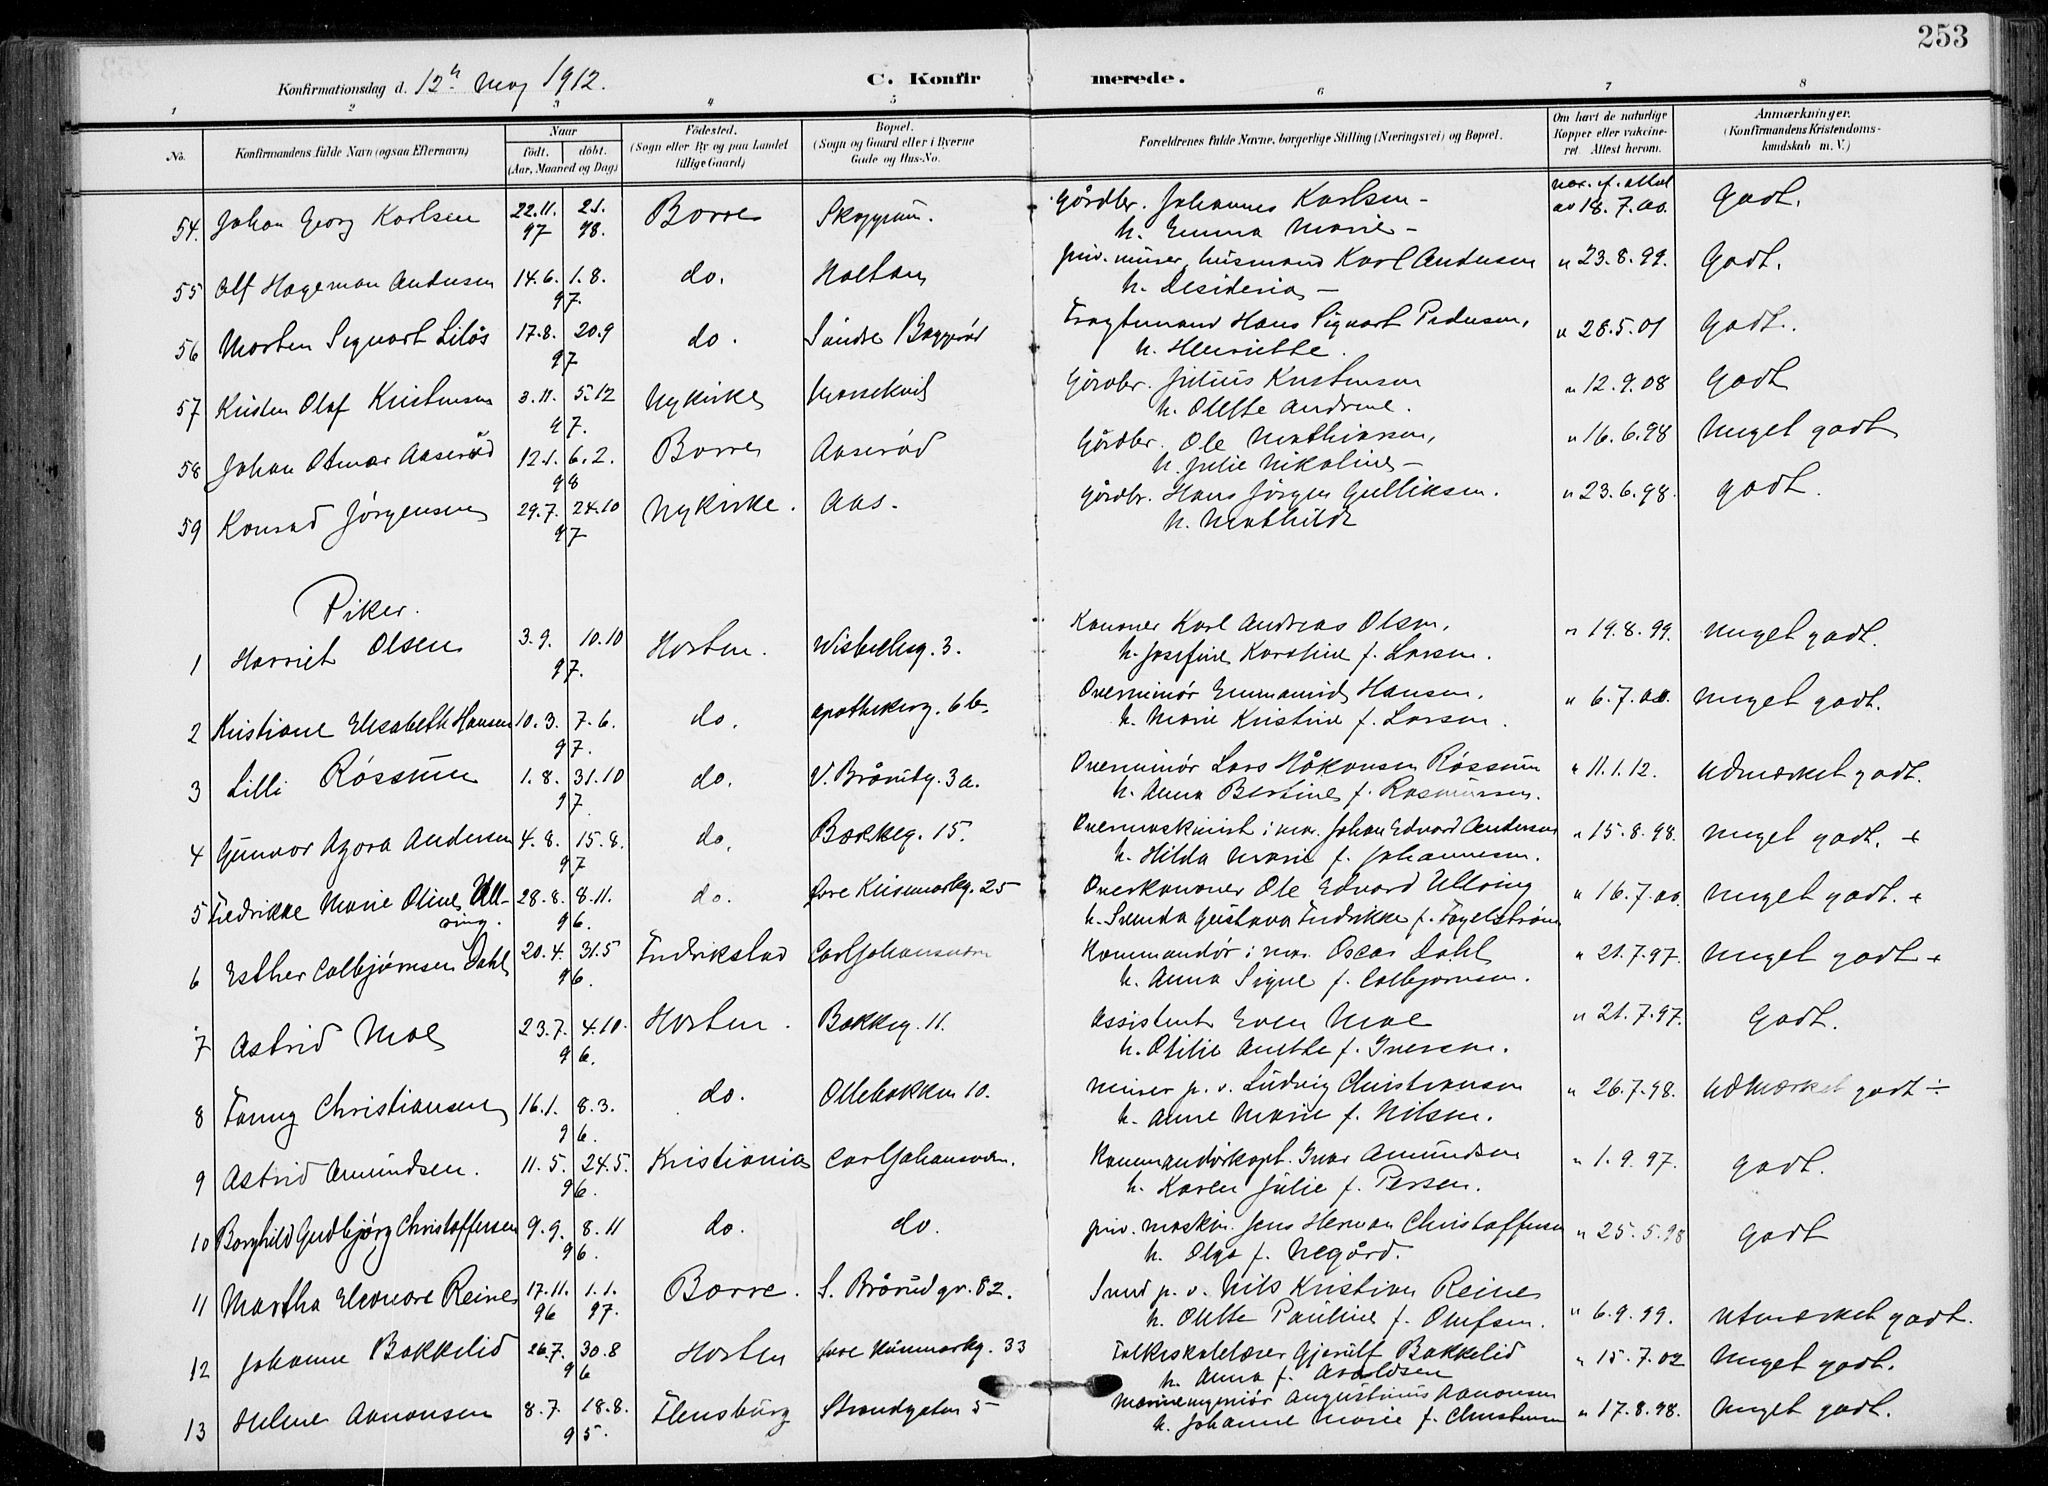 253
Konfirmationsdag d. 12te Maj 1912.
C. Konfirmerede.
1 2 3 4 5 6 7 8
No.
Konfirmandens fulde Navn (ogsaa Efternavn)
Naar
født. døbt.
(Aar, Maaned og Dag)
Fødested.
(Sogn eller By og paa Landet
tillige Gaard)
Bopæl.
(Sogn og Gaard eller i Byerne
Gade og Hus-No.
Forældrenes fulde Navne, borgerlige Stilling (Næringsvei) og Bopæl.
Om havt de naturlige
Kopper eller vakcine-
ret. Attest herom.
Anmærkninger.
(Konfirmandens Kristendoms-
kundskab m. V.)
54. Johan Georg Karlsen 22.11. 97 2.1. 98. Borre Skoppum. Gårdbr. Johannes Karlsen - av 18.7.00. Godt.
h. Emma Marie -
55 Alf Hageman Andersen 14.6. 1.8. 97. do. Holtan husmand Karl Andersen " 23.8.99. Godt.
h. Desideria -
56 Morten Sigvart Liløs 17.8. 20.9 97 do. Søndre Baggerød Fragtemand Hans Sigvart Pedersen, " 28.5.01 Godt.
h. Henriette.
57 Kristen Olaf Kristensen 3.11. 5.12 97. Nykirke Gårdbr. Julius Kristensen " 12.9.08 Godt
h. Olette Andrine.
58 Johan Otmar Aaserød 12.1. 6.2. 98 Borre Aaserød Gårdbr. Ole Mathiassen, " 16.6.98 Meget godt
h. Julie Nikoline -
59 Konrad Jørgensen 29.7. 24.10 97 Nykirke. Aas. Gårdbr. Hans Jørgen Gulliksen. " 23.6.98. Godt.
h. Mathilde
Piker.
1 Harriet Olsen 3.9. 10.10 97. Horten. Wisbechsg. 3. Kanoner Karl Andreas Olsen, " 19.8.99. Meget godt.
h. Josefine Karoline f. Larsen.
2 Kristiane Elisabeth Hansen 10.3. 7.6. 97. do. Apothekerg. 6b. Overminør Hansen. " 6.7.00. Meget godt.
h. Marie Kristine f. Larsen.
3 Lilli Røssum 1.8. 31.10 97 do. V. Brårudg. 3a. Overminør Lars Håkonsen Røssum " 11.1.12. Udmærket godt.
h. Anna Bertine f. Rasmussen.
4 Gunvor Agora Andersen 4.8. 15.8. 97 do. Bakkeg. 15. Overmaskinist i mar. Johan Edvard Andersen " 15.8.98. Meget godt. +
h. Hilda Marie f. Johannesen.
5 Fredrikke Marie Oline Ull-
ring. 28.8. 8.11. 96. do. Øvre Keisemarkg. 25 Overkanoner Ole Edvard Ullring " 16.7.00. Meget godt. +
h. Svenda Gustava Fredrikke f. Fogelstrøm
6 Esther Colbjørnsen Dahl 20.4. 31.5 96. Fredrikstad Carljohansværn Kommandør i mar. Oscar Dahl " 21.7.97. Meget godt +
h. Anna Signe f. Colbjørnsen.
7 Astrid Moe 23.7. 4.10. 96. Horten. Bakkeg. 11. Assistent Even Moe " 21.7.97. Godt.
h. Otilie Anette f. Iversen.
8 Fanny Christiansen 16.1. 8.3. 96. do. Ollebakken 10. Murer p. v. Ludvig Christiansen " 26.7.98. Udmærket godt ÷
h. Anne Marie f. Nilsen.
9 Astrid Amundsen. 11.5. 24.5. 96. Kristiania Carljohansværn. Kommandørkapt. Ivar Amundsen " 1.9.97. Godt.
h. Karen Julie f. Persen.
10 Borghild Gudbjørg Christoffersen 9.9. 8.11 96. do. do. priv. maskin. Jens Herman Christoffersen " 25.5.98 Godt
h. Olga f. Negård.
11 Martha Eleonore Reine 17.11. 96 1.1. 97. Borre. S. Bråtudgr. 82. Smed p. v. Nils Kristian Reine " 6.9.99. Utmærket godt.
h. Olette Pauline f. Olufsen.
12 Johanne Bakkelid 26.7. 30.8 96 Horten Øvre Keisemarkg. 33 Folkeskolelærer Gjerulf Bakkelid " 15.7.02 Meget godt.
h. Anna f. Avaldsen
13 Helene Aanonsen 8.7. 18.8. 95. Flensburg Strandgaten 5 Marineingeniør Augustinius Aanonsen " 17.8.98. Meget godt.
h. Johanne Marie f. Christensen